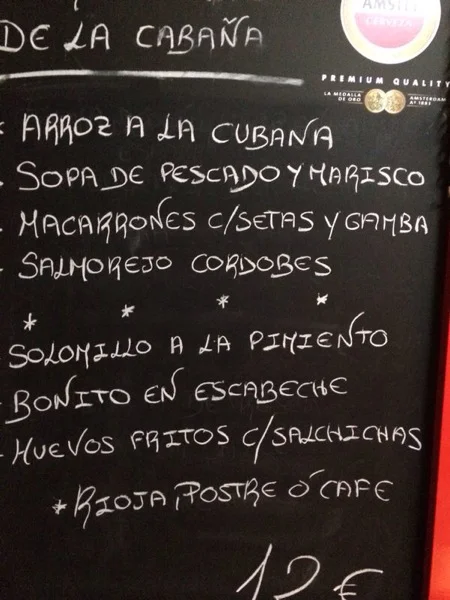 DE LA CABAÑA
AMSTEL
CERVEZA
PREMIUM QUALITY
LA MEDALLA DE ORO
AMSTERDAM Aº 1883
* ARROZ A LA CUBANA
- SOPA DE PESCADO Y MARISCO
- MACARRONES C/SETAS Y GAMBA
- SALMOREJO CORDOBES
* * * *
- SOLOMILLO A LA PIMIENTO
- BONITO EN ESCABECHE
- HUEVOS FRITOS C/SALCHICHAS
* RIOJA, POSTRE O´ CAFE
12 €